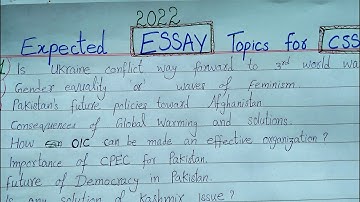 2022
Expected ESSAY Topics for CSS
Is Ukraine conflict way forward to 3rd world wa
Gender equality 'or' waves of Feminism.
Pakistan's future policies toward Afghanistan
Consequences of Global Warming and solutions.
How can OIC can be made an effective organization?
Importance of CPEC for Pakistan.
Future of Democracy in Pakistan.
Is any solution of Kashmir issue?